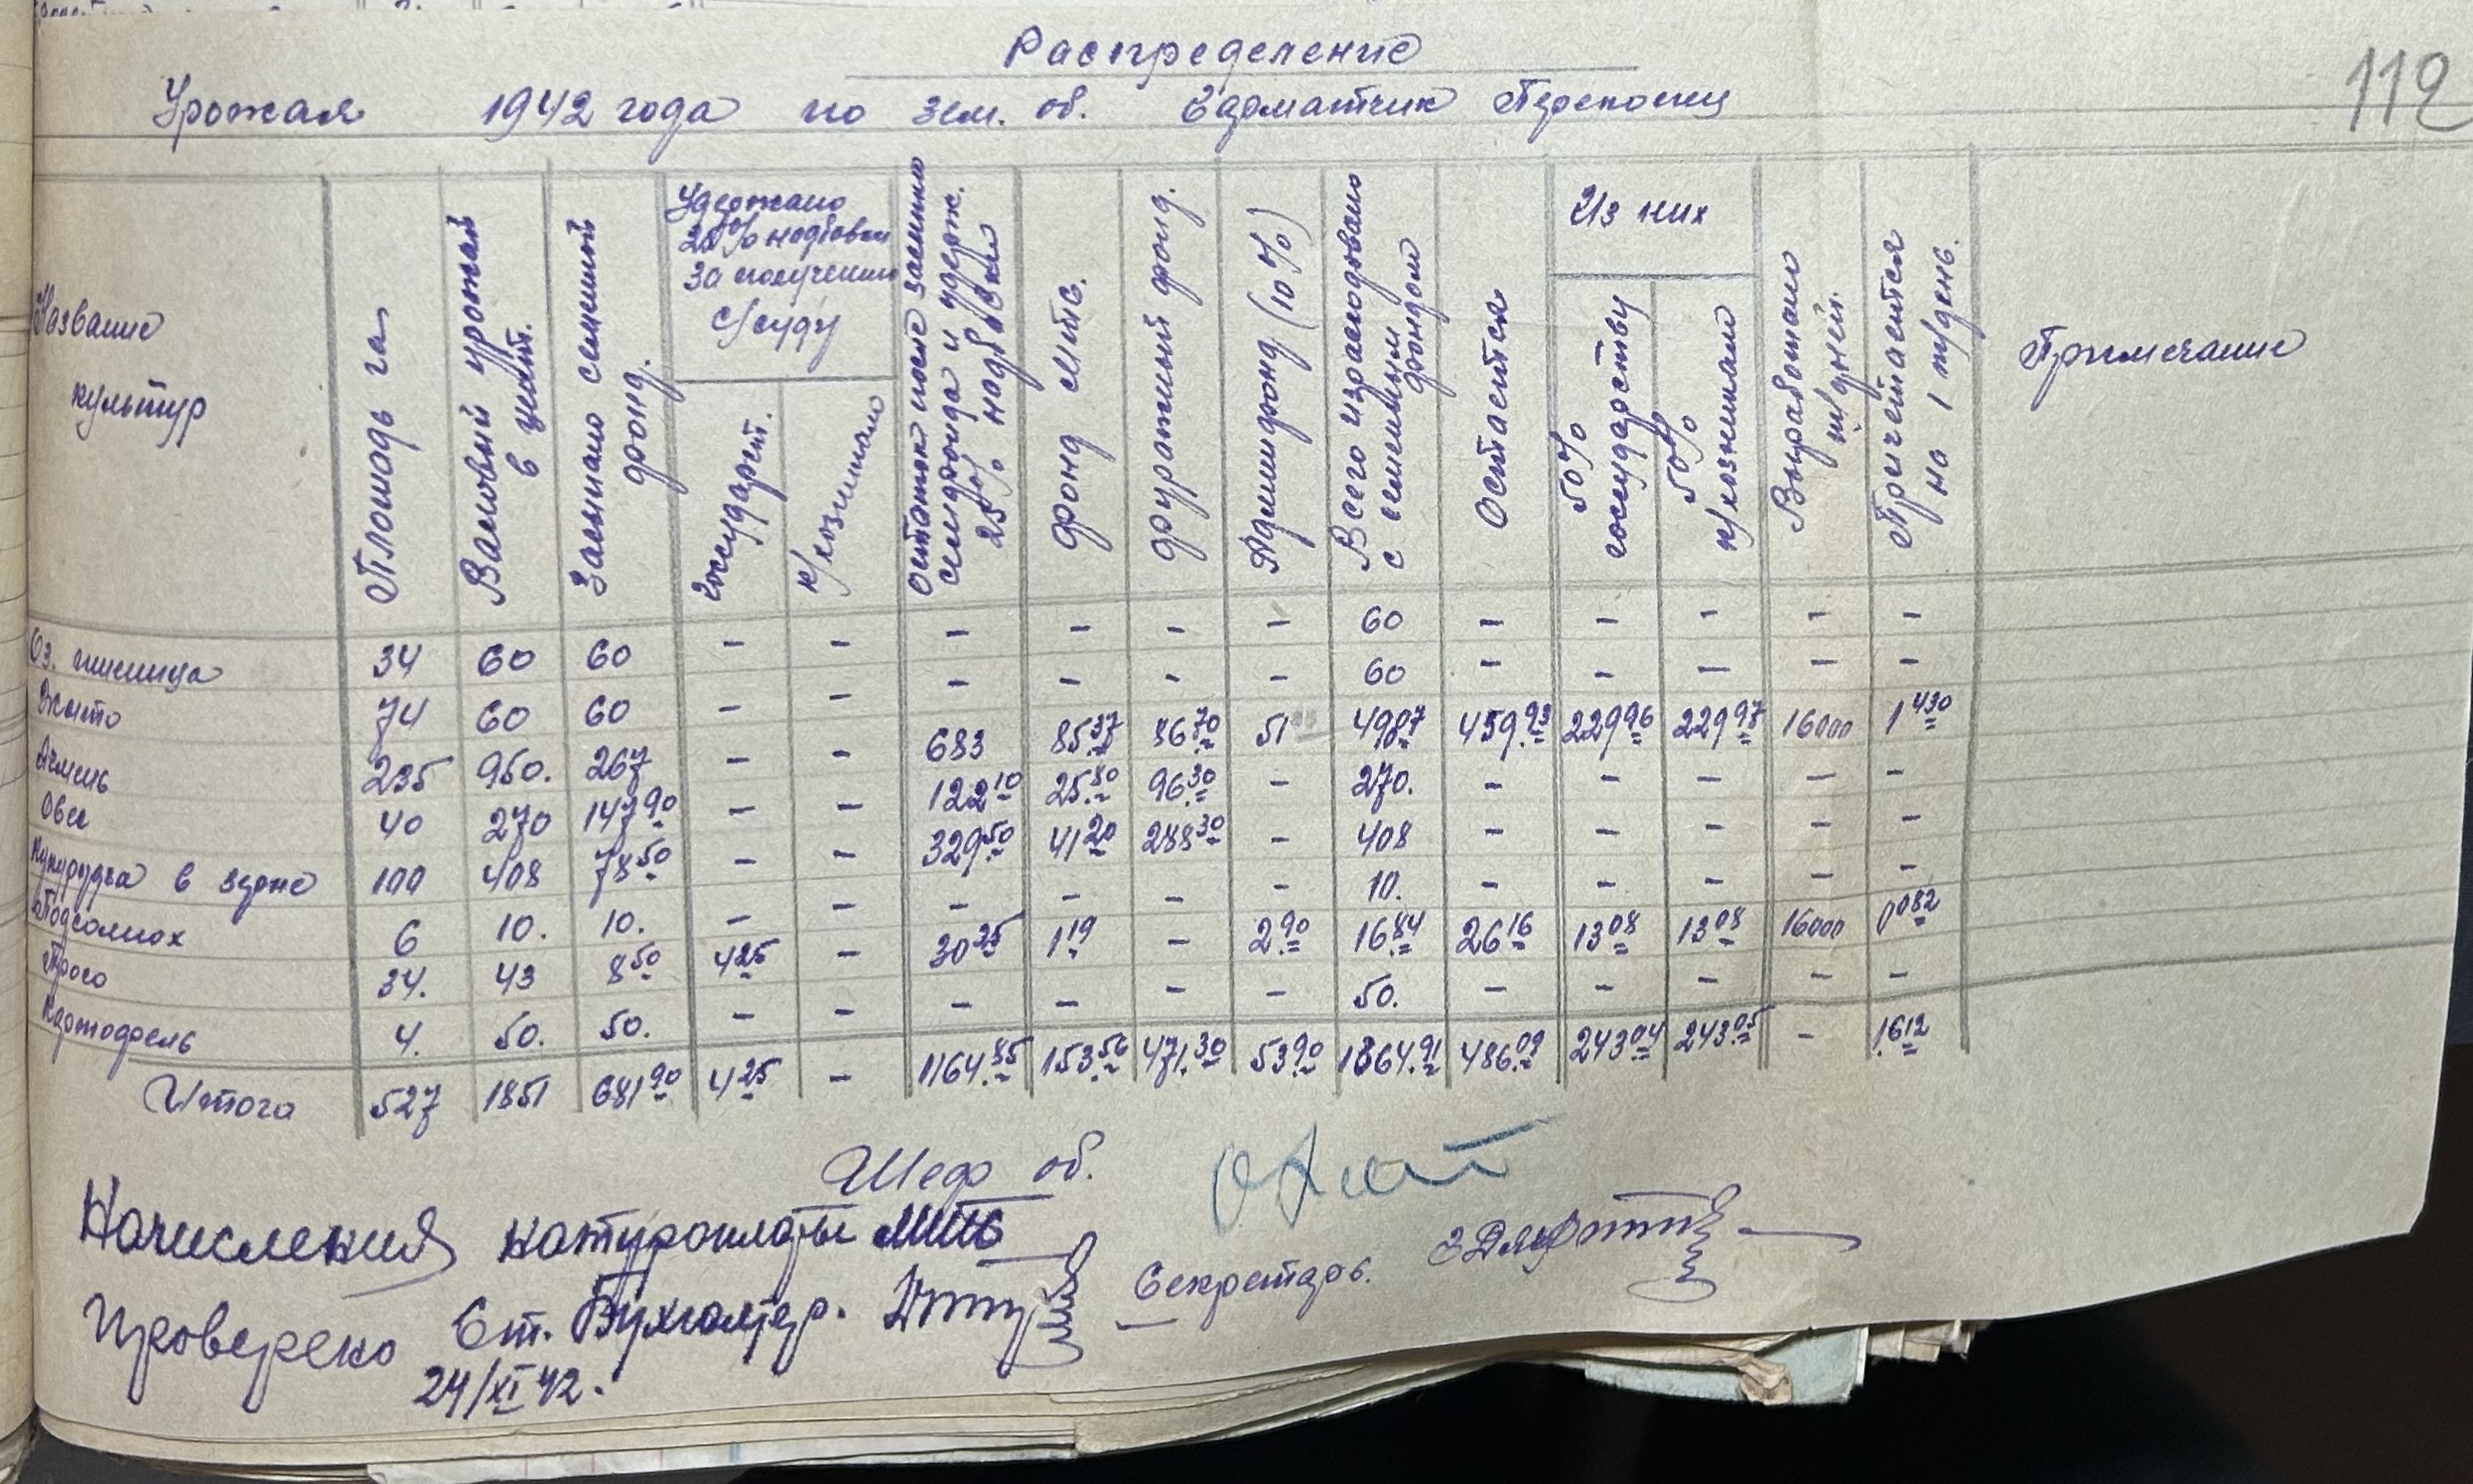 Распределение
Урожая 1942 года по зем. об. Сарматчик Перекопец
112
Название культур
Площадь га
Валовый урожай в цент.
Засыпано семенной фонд.
Удержано
за полученную
с/суду
государст.
к/хозникам
Остаток после засыпки семфонда и удерж. 25% надбавки
фонд МТС.
фуражный фонд.
Адмифонд (10%)
Всего израсходовано с семенным фондом
Остается
Из них
50% государству
50% к/хозникам
Выработано т/дней.
Причитается на 1 т/день.
Примечание
Оз. пшеница 34 60 60 - - - - - - 60 - - - - -
Жито 74 60 60 - - - - - - 60 - - - - -
Ячмень 235 950. 267 - - 683 85.37 86.70 51 490.7 459.93 229.96 229.97 16000 1 430
Овес 40 270 147 90 - - 122 10 25.80 96.30 - 270. - - - - -
Кукурудза в зерне 100 408 78 50 - - 329.50 41 20 288 30 - 408 - - - - -
Подсолнох 6 10. 10. - - - - - - 10. - - - - -
Просо 34. 43 8 50 4 25 - 30 25 1 19 - 2.90 16.84 26 16 13 08 13 08 16000 0 082
Картофель 4. 50. 50. - - - - - - 50. - - - - -
Итога 527 1851 681 90 4 25 - 1164.85 153.56 471.30 53.90 1364.91 486.09 243 04 243.05 - 1.612
Шеф об.
Начисления натуроплаты МТС
Секретарь.
Проверено Ст. Бухгалтер.
24/XI 42.